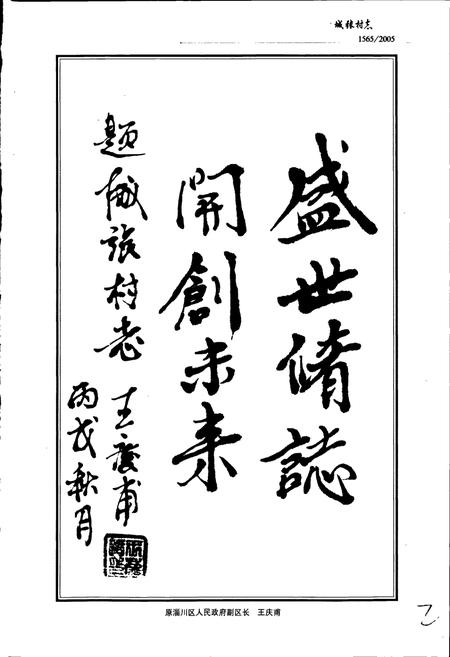 城张村志
1565/2005
盛世脩誌
開創未来
题城张村志
王庆甫
丙戌秋月
原淄川区人民政府副区长 王庆甫